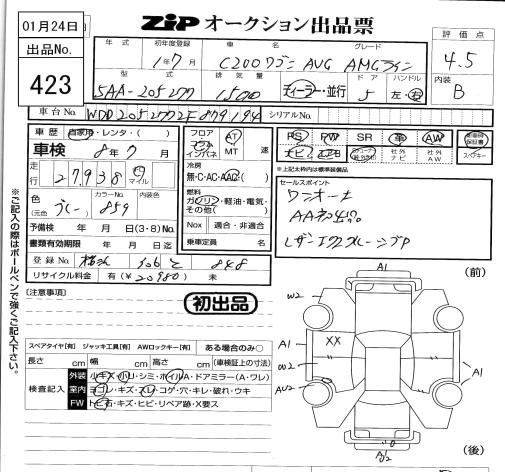 01月24日
出品No.
423
ZIP オークション出品票
評価点
4.5
内装
B
年式 初年度登録 車名 グレード
1年7月 C200ワゴン AVG AMGライン
型式 排気量 ドア ハンドル
5AA-205277 1500 ディーラー・並行 5 左・右
車台No. WDD2052772F879194 シリアルNo.
車歴 自家用・レンタ( )
車検 8年7月
走行 27,938 km マイル
色(元色) カラーNo. 859 内装色
予備検 年 月 日(3・8)No.
書類有効期限 年 月 日迄
登録No. 306 と 848
リサイクル料金 有(¥20980) 未
フロア コラム インパネ AT MT 速
冷房
無・C・AC・AAC( )
燃料
ガソリン・軽油・電気・その他( )
Nox 適合・非適合
乗車定員 名
PS PW SR 革 AW 新車時保証書
ナビ エアB 社外ナビ 社外AW スペアキー
※上記太枠内は標準装備品
セールスポイント
ワンオーナ
レザーエクスクルーシブP
※ご記入の際はボールペンで強くご記入下さい。
(注意事項)
初出品
スペアタイヤ[有] ジャッキ工具[有] AWロックキー[有] ある場合のみ○
長さ cm 幅 cm 高さ cm (車検証上の寸法)
検査記入
外装 小キズ・小リ・シミ・ホイルA・ドアミラー(A・ワレ)
室内 ヨゴレ・キズ・スレ・コゲ・穴・キレ・破れ・ウキ
FW トビ石・キズ・ヒビ・リペア跡・X要ス
(前)
A1
W2
A1
XX
W2
AW2
A1
A1
A1/2
(後)